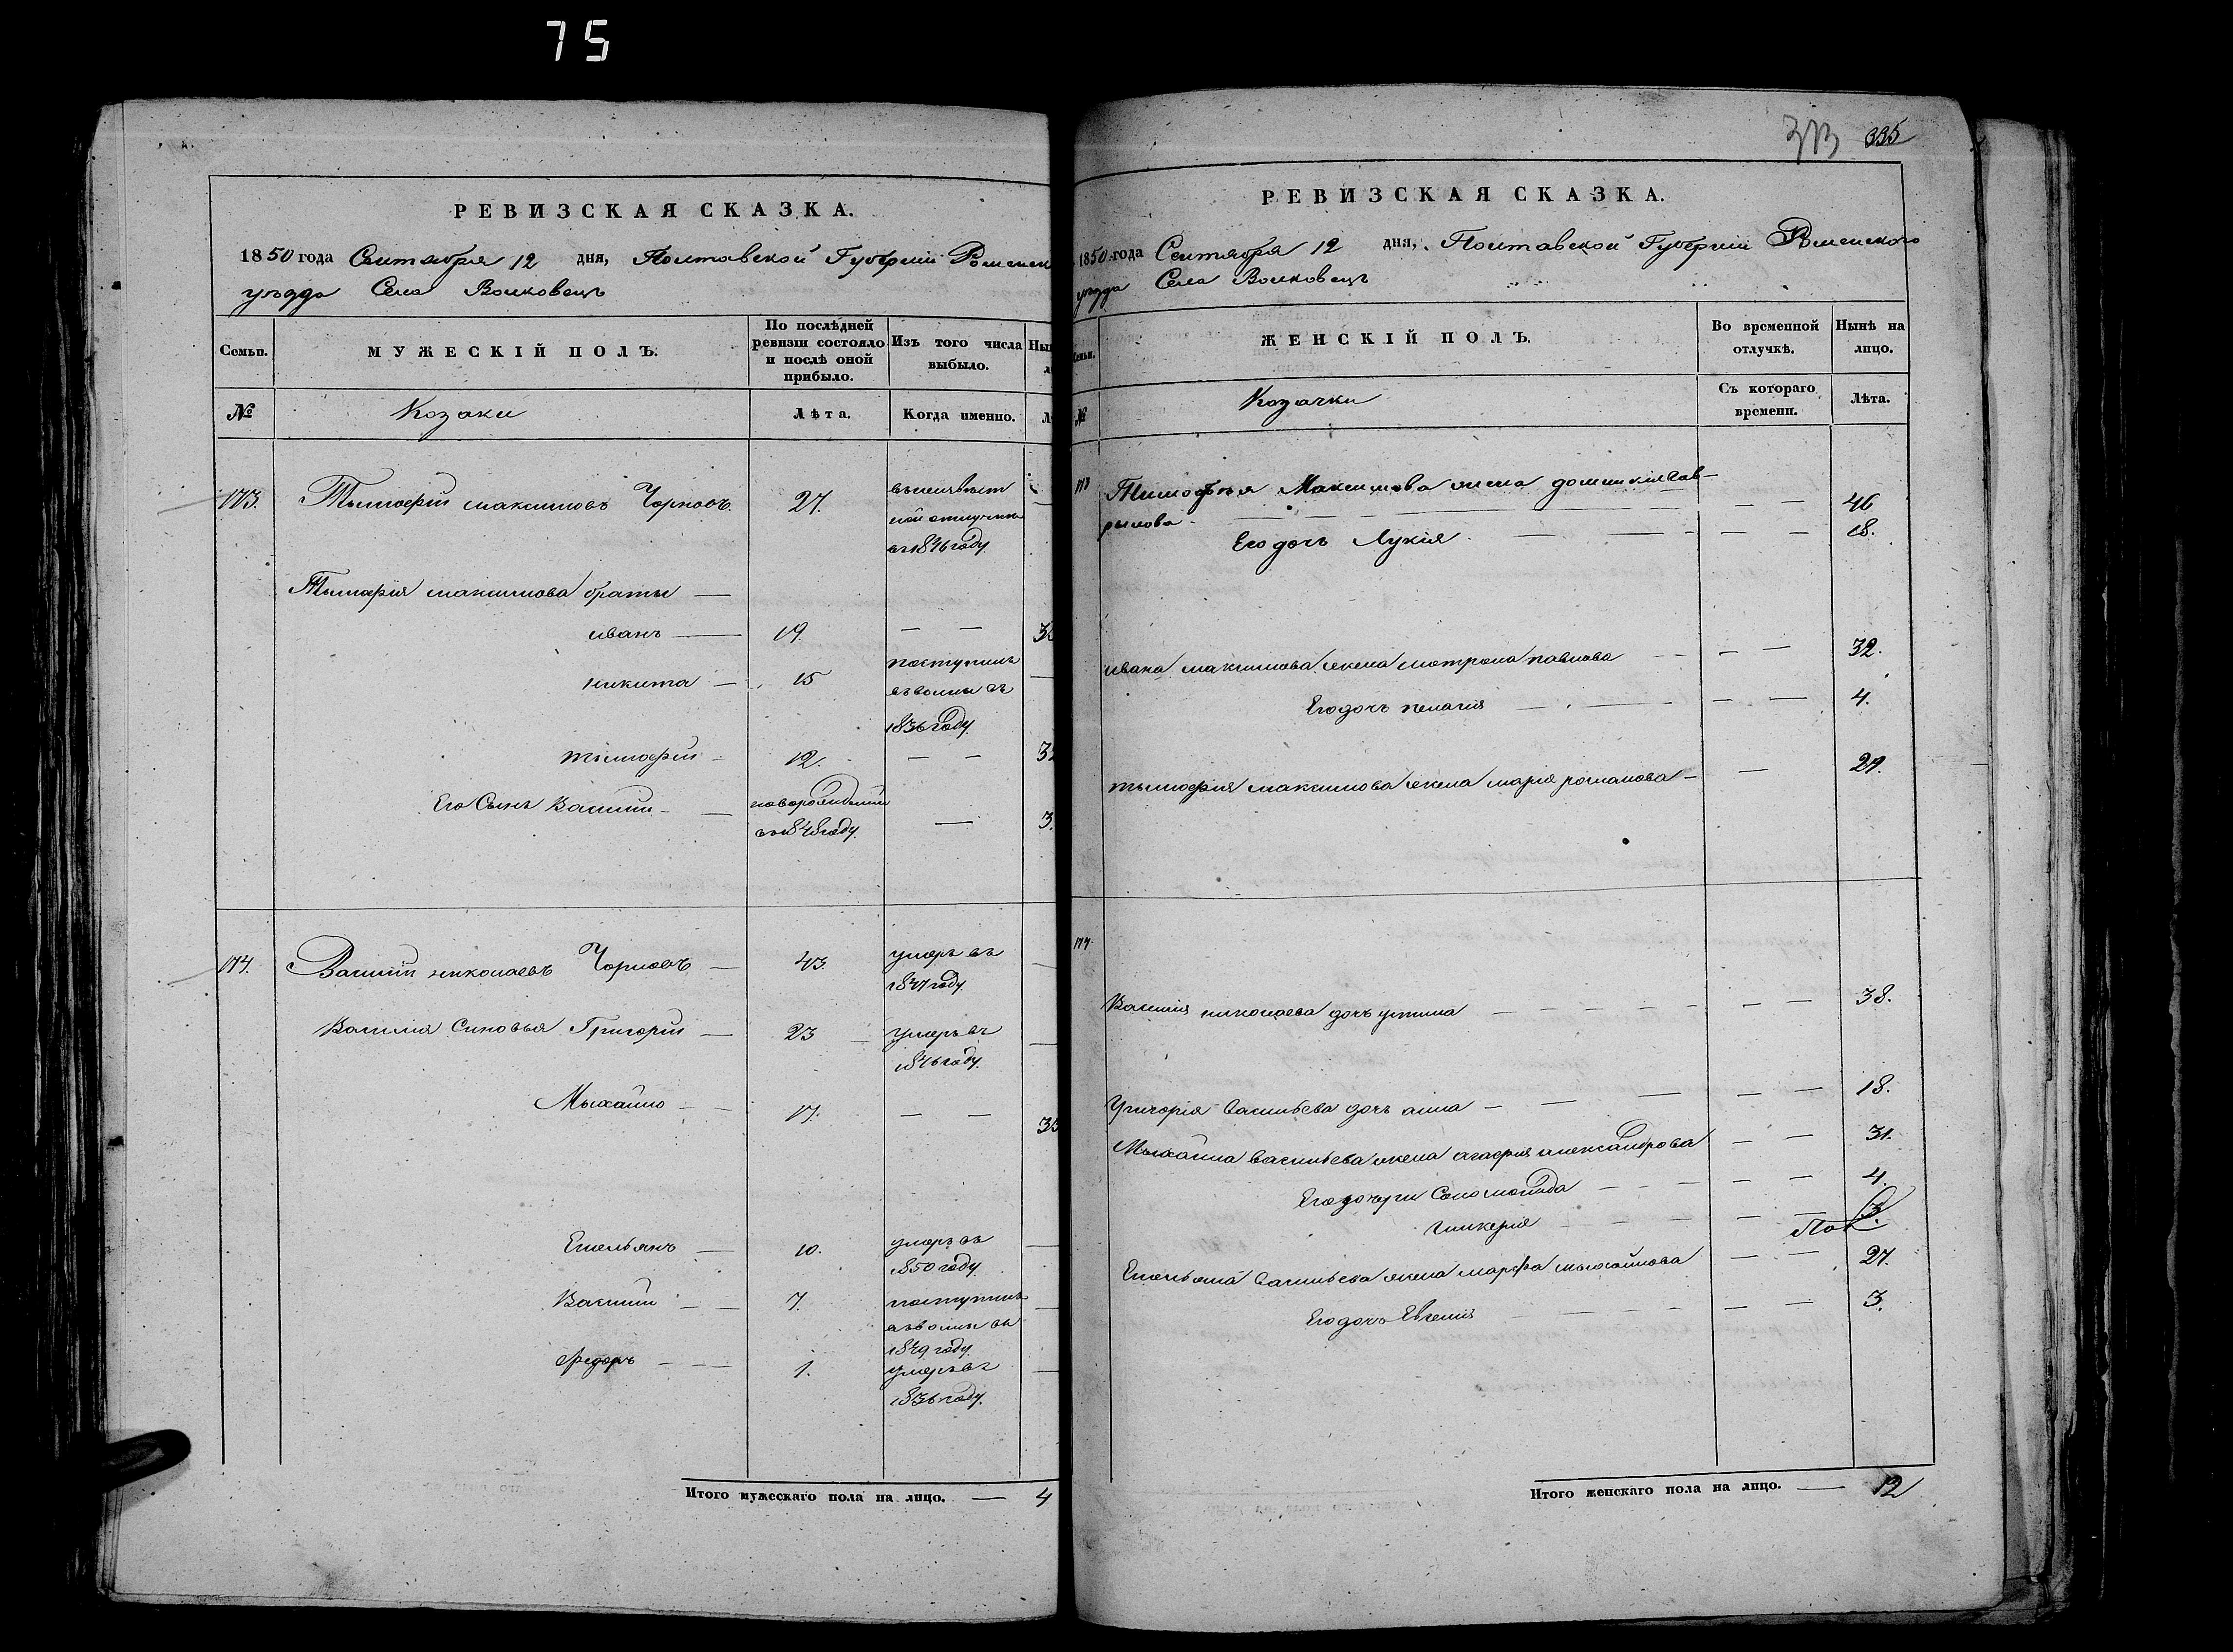 75
РЕВИЗСКАЯ СКАЗКА.
1850 года Сентября 12 дня, Полтавской Губернии Роменск
уезда Села Волковецъ
Семьи.
МУЖЕСКІЙ ПОЛЪ.
По послѣдней
ревизіи состояло
и послѣ оной
прибыло.
Изъ того числа
выбыло.
Ны
№
Козаки
Лѣта.
Когда именно.
Л
173. Тымофій максимовъ Чорновъ. 27.
отлучки
въ 1846 году
Тымофія максимова браты —
иванъ — 19. — — 3
никита — 15 поступилъ
въ
1836 году.
тымофій — 12. — — 3
Его Сынъ Василий — новорожденный — 3
въ 1848 году.
174. Василий николаевъ Чорновъ — 43. умеръ въ —
1847 году.
Василия Синовья Григорій — 23 умеръ въ —
1846 году.
Мыхайло — — 17. — — 33
Емельянъ — 10. умеръ въ —
1850 году.
Василий — — 7. поступилъ —
въ
1849 году.
Федоръ — — — 1. умеръ въ —
1836 году.
Итого мужескаго пола на лицо. — 4
373 335
РЕВИЗСКАЯ СКАЗКА.
1850 года Сентября 12 дня, Полтавской Губернии Роменского
уезда Села Волковецъ
Семьи.
ЖЕНСКІЙ ПОЛЪ.
Во временной
отлучкѣ.
Нынѣ на
лицо.
№
Козачки
Съ котораго
времени.
Лѣта.
173 Тимофея Максимова жена Гав-
рилова — — — 46
Его дочъ Лукія — — — 18.
ивана максимова жена мотрона павлова — — 32.
Его дочъ пелагия — — — 4.
тымофия максимова жена марія романова — — 29.
174.
Василия николаева дочъ устина — — — 38.
Григория Васильева дочъ анна — — — 18.
Мыхайла Васильева жена агафия александрова — — 31.
Его дочери Соломонида — — — 4.
гликерия — — — 3.
Пол
Емельяна Васильева жена марфа мыхайлова — — 27.
Его дочъ Евгения — — — 3.
Итого женскаго пола на лицо. — 12